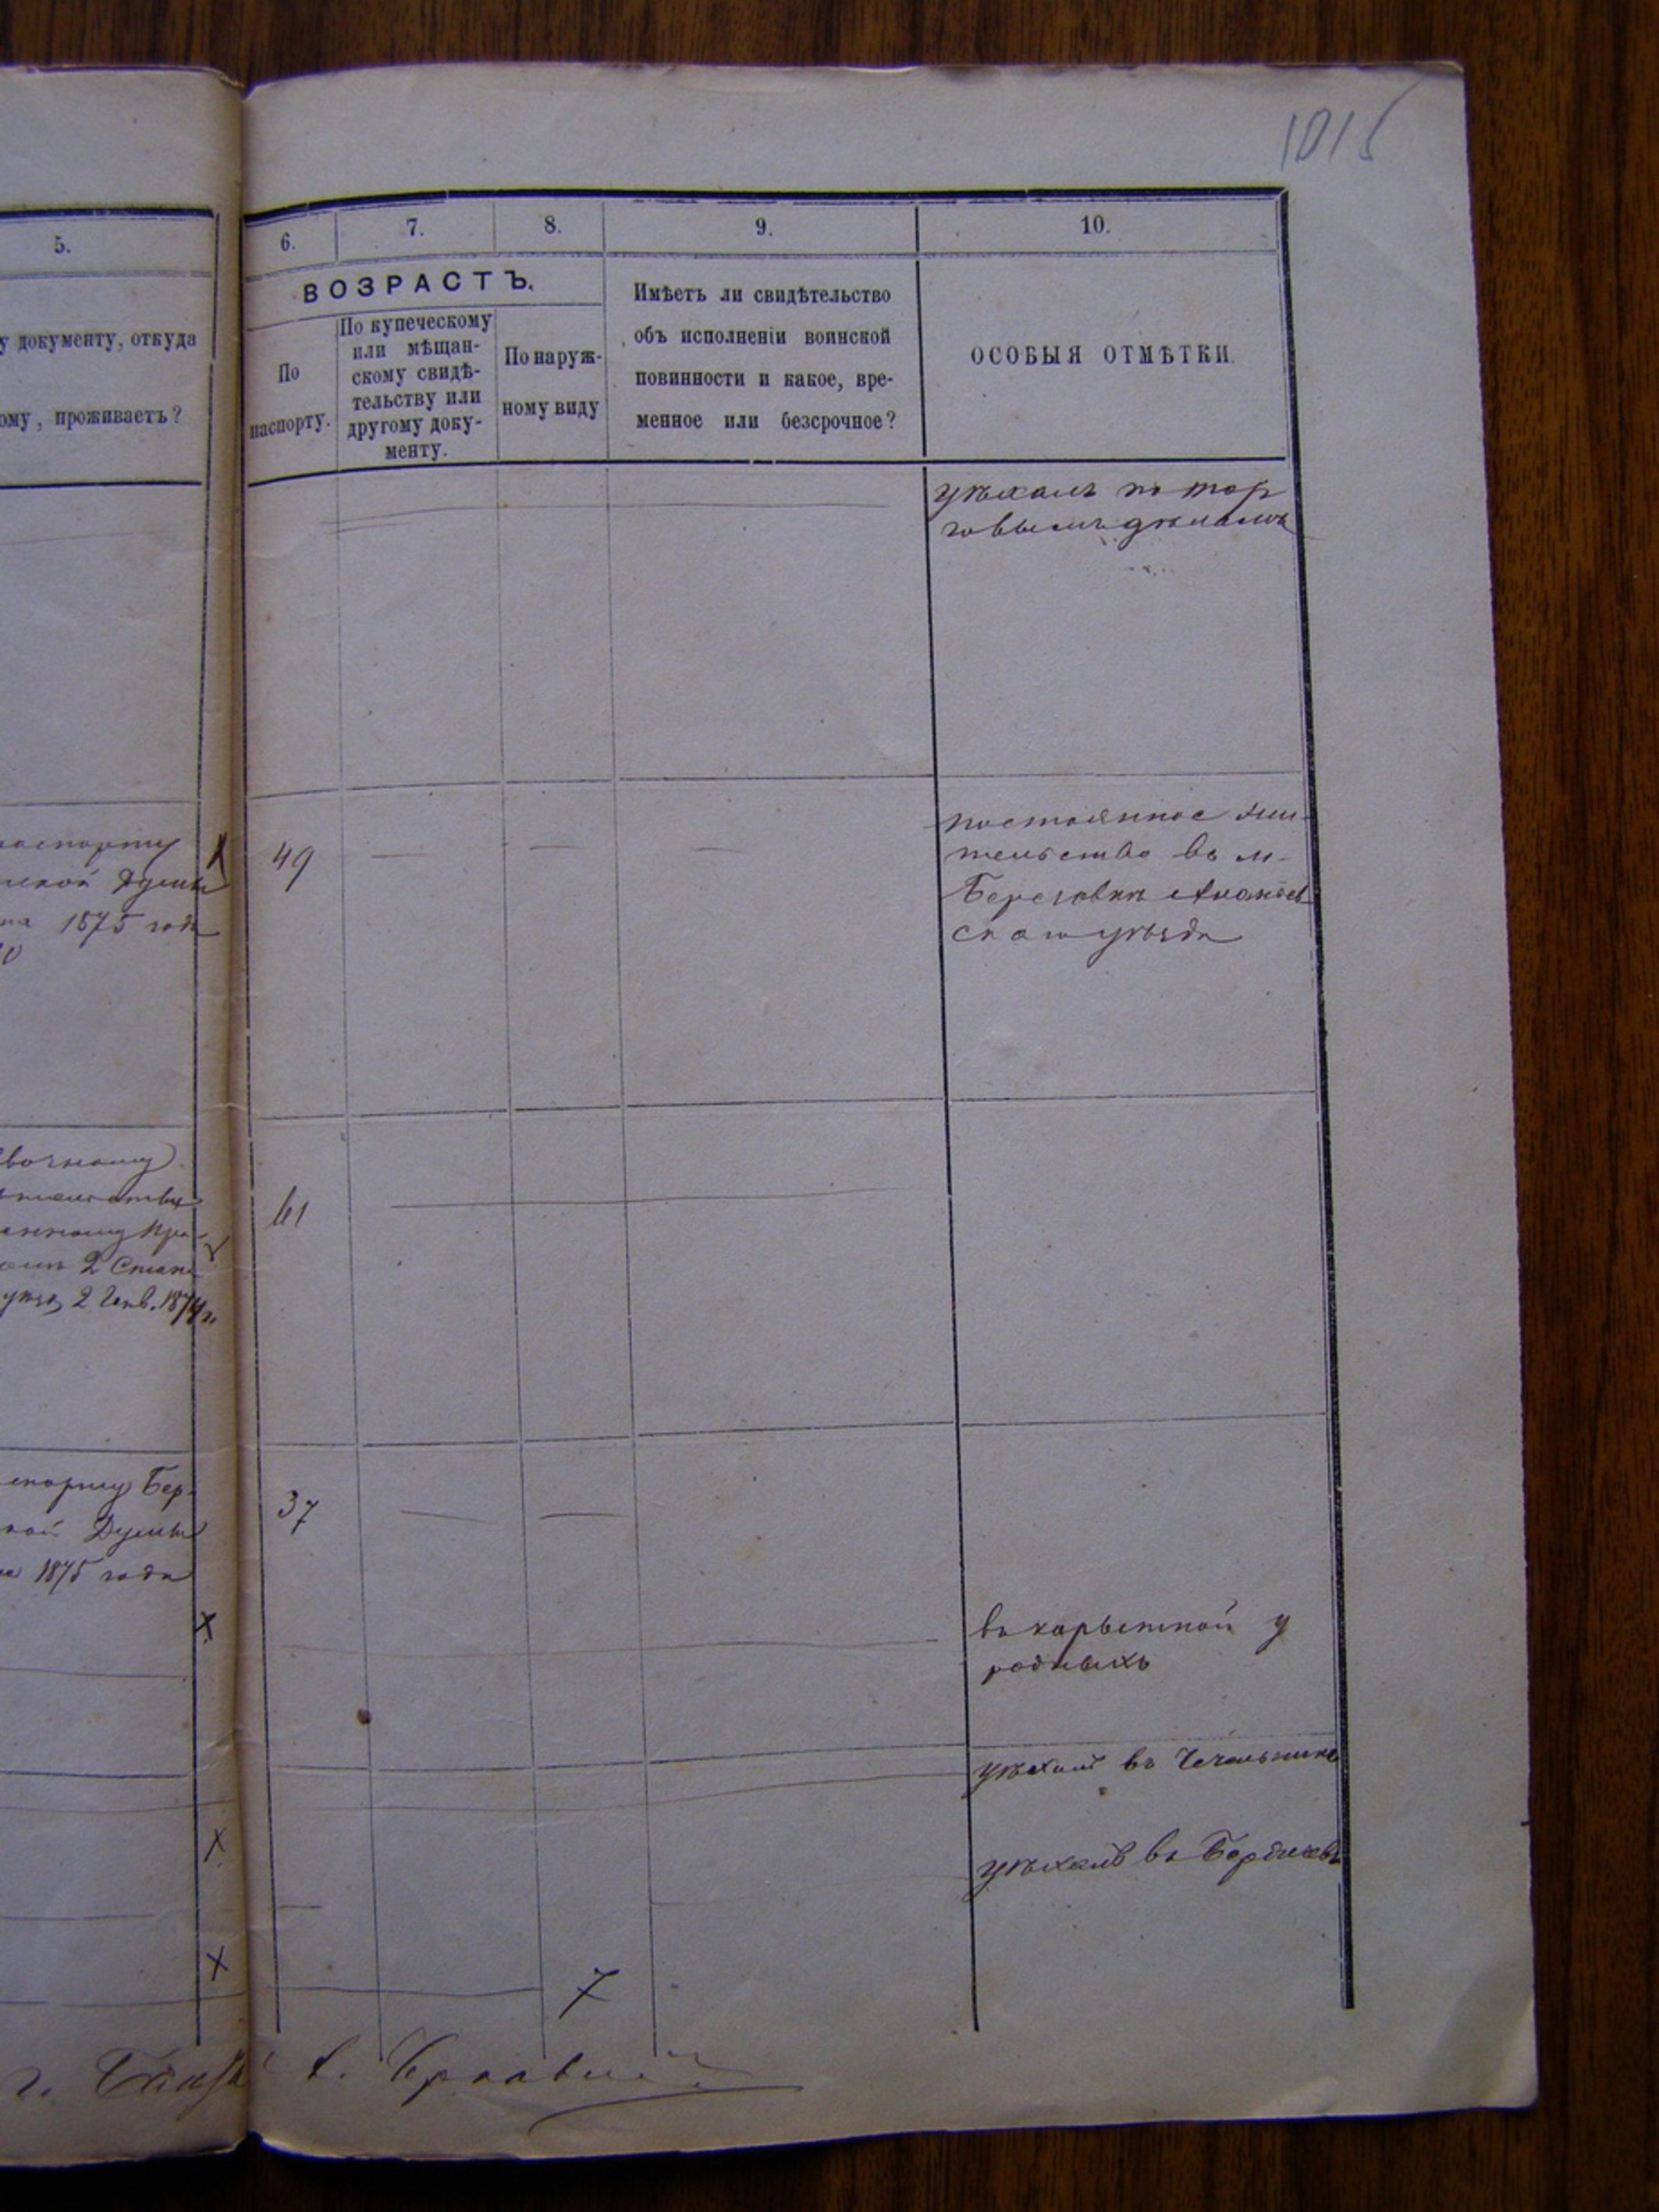 1015
5.
6.
7.
8.
9.
10.
у документу, откуда
ому, проживаетъ?
ВОЗРАСТЪ.
По
паспорту.
По купеческому
или мѣщан-
скому свидѣ-
тельству или
другому доку-
менту.
По наруж-
ному виду
Имѣетъ ли свидѣтельство
объ исполненіи воинской
повинности и какое, вре-
менное или безсрочное?
ОСОБЫЯ ОТМѢТКИ.
уѣхалъ по тор
говымъ дѣламъ
паспорту
ской Думы
1875 года
49
постоянное жи-
тельство въ м.
Березовкѣ Ананьев
скаго уѣзда
61
2 Стана
2 Генв. 1874 г.
спорту Бер-
кой Думы
1875 года
37
въ
у
родныхъ
уѣхалъ въ Чечельникъ
уѣхалъ въ Бердичевъ